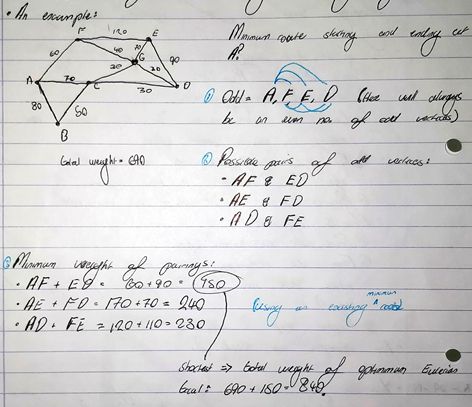 • An example:
F 120 E
60 40 70 G 90
20 30
A 70 C 30 D
80 50
B
total weight = 690
Minimum route starting and ending at
A?
① Odd = A, F, E, D (Here will always
be an even no. of odd vertices)
② Possible pairs of odd vertices:
• AF & ED
• AE & FD
• AD & FE
③ Minimum weight of pairings:
• AF + ED = 60 + 90 = 150
• AE + FD = 170 + 70 = 240
• AD + FE = 120 + 110 = 230
(Using an existing minimum route)
shortest => total weight of optimum Eulerian
Goal: 690 + 150 = 840.